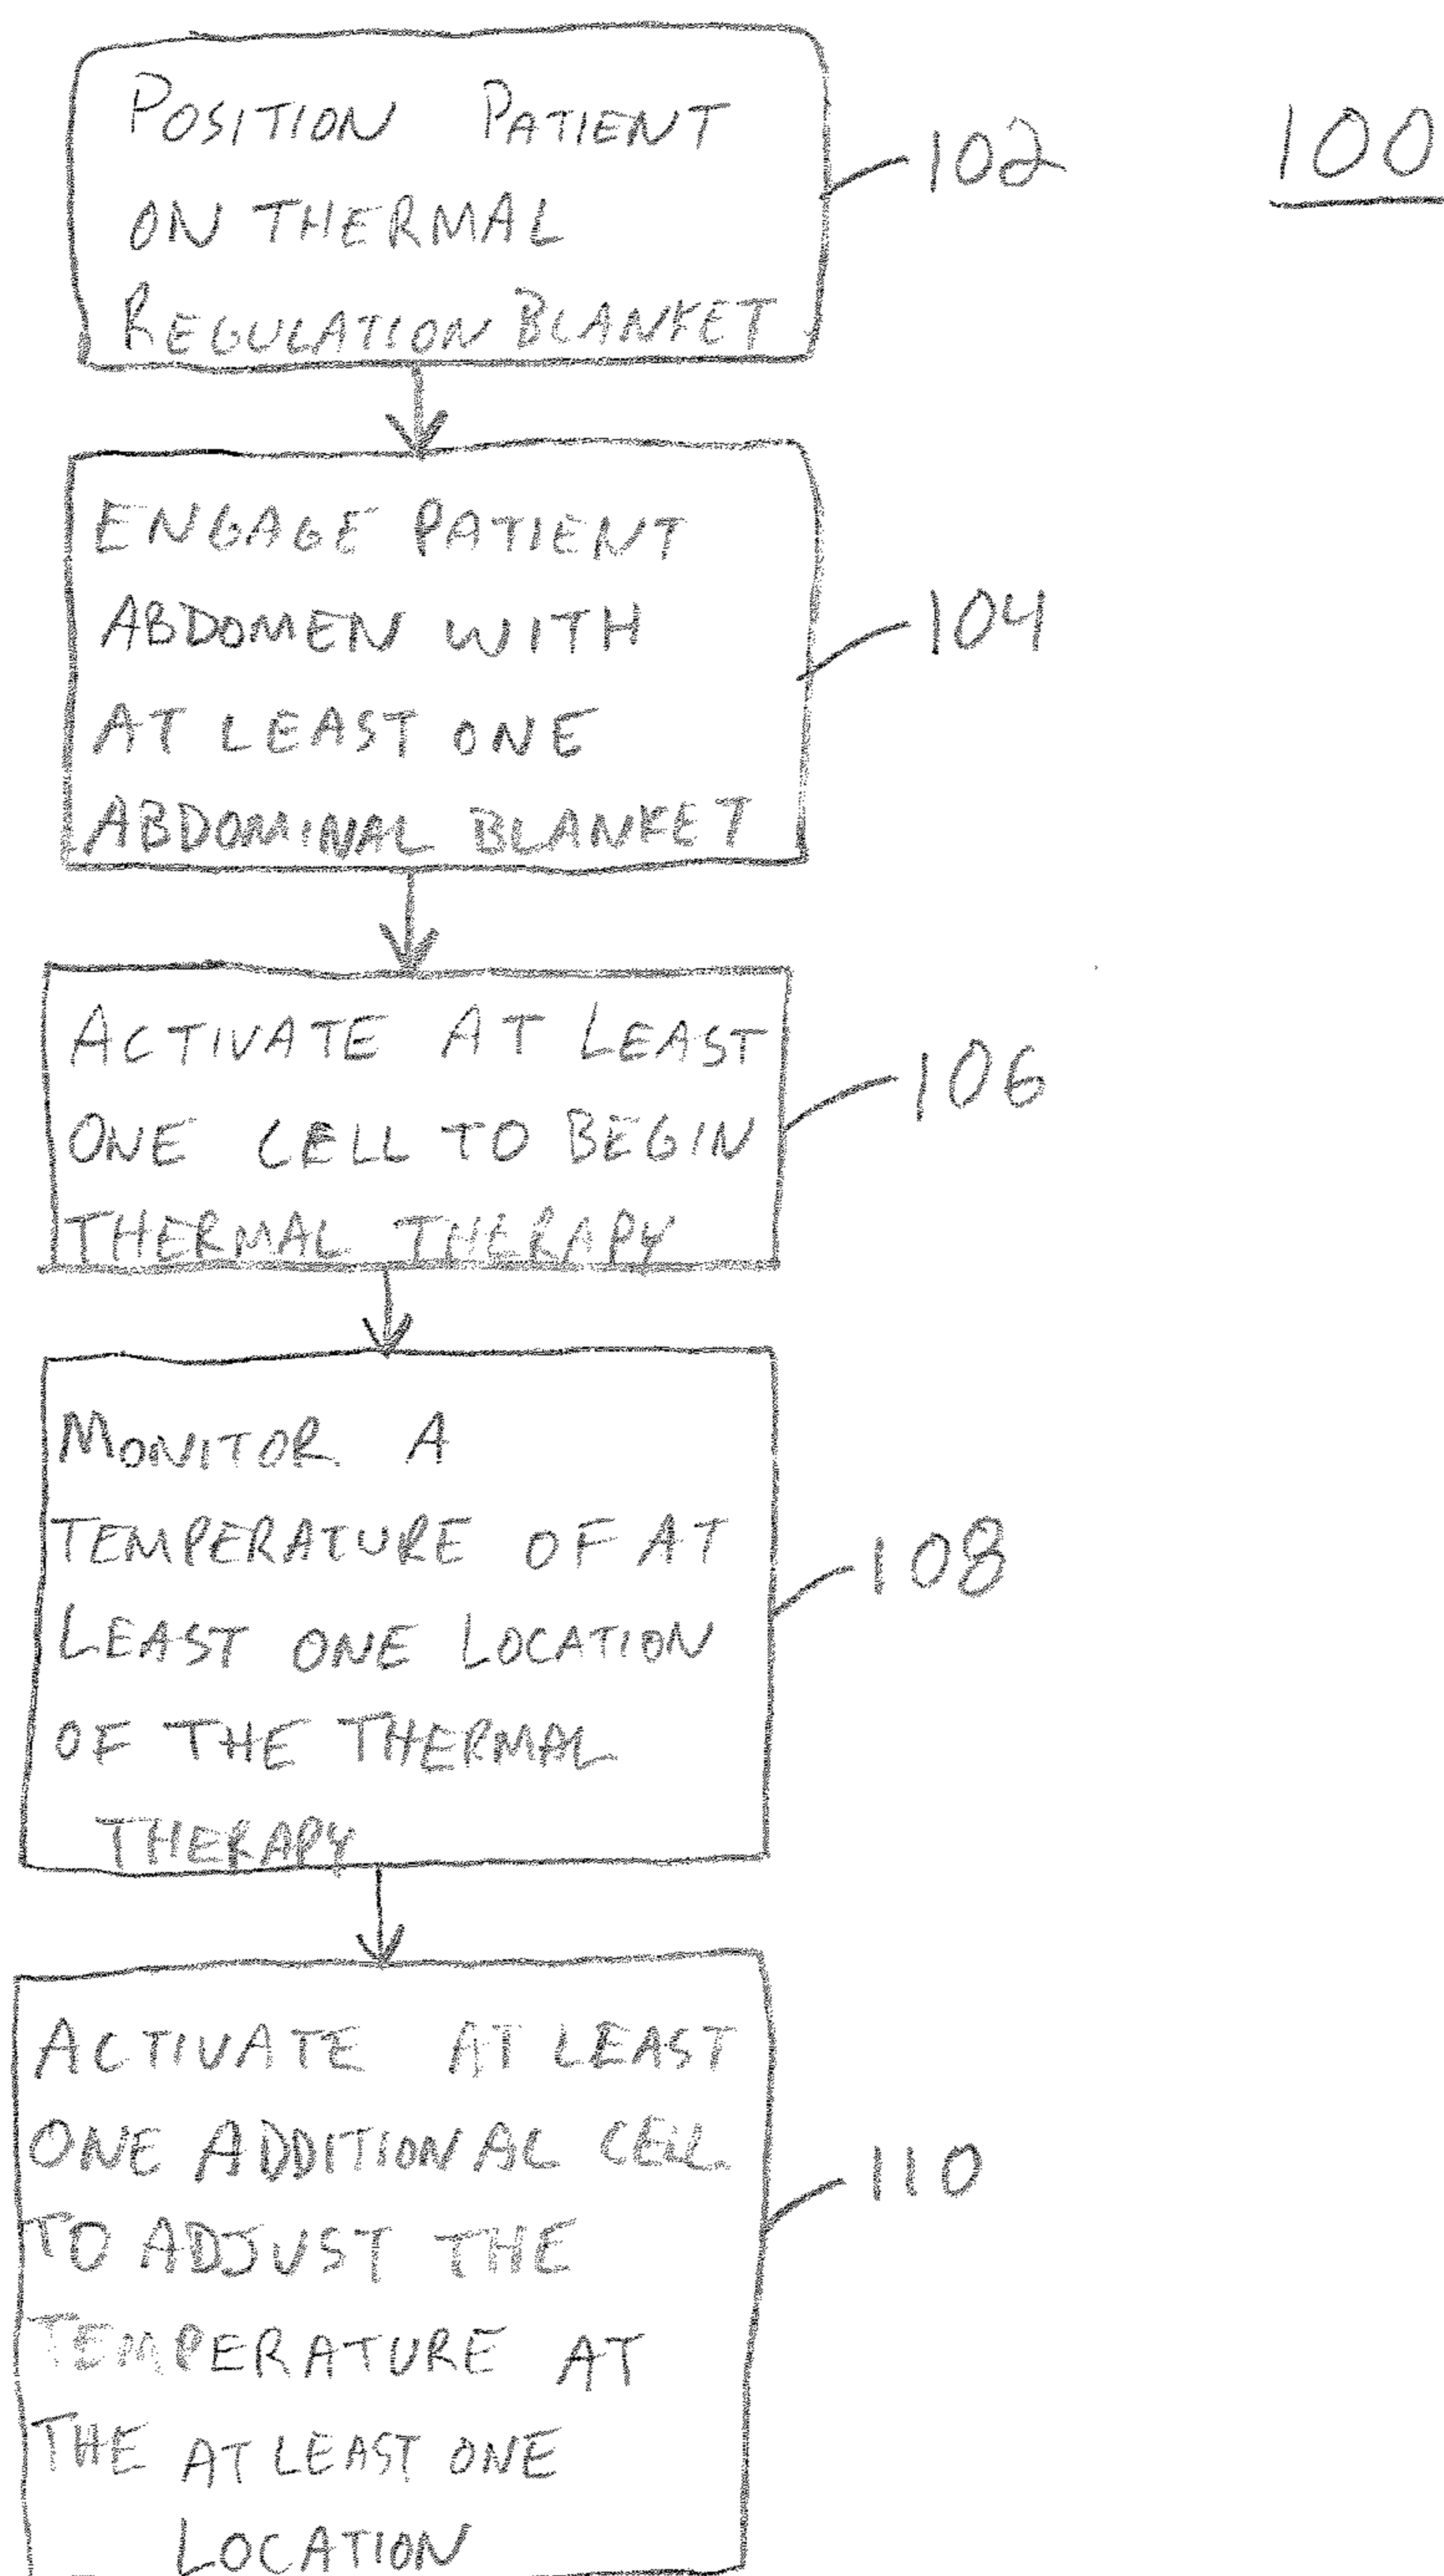 POSITION PATIENT
ON THERMAL
REGULATION BLANKET
102
100
ENGAGE PATIENT
ABDOMEN WITH
AT LEAST ONE
ABDOMINAL BLANKET
104
ACTIVATE AT LEAST
ONE CELL TO BEGIN
THERMAL THERAPY
106
MONITOR A
TEMPERATURE OF AT
LEAST ONE LOCATION
OF THE THERMAL
THERAPY
108
ACTIVATE AT LEAST
ONE ADDITIONAL CELL
TO ADJUST THE
TEMPERATURE AT
THE AT LEAST ONE
LOCATION
110